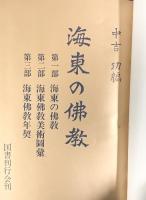 中吉功編
海東の佛教
第一部 海東の佛教
第二部 海東佛教美術圖彙
第三部 海東佛教年契
国書刊行会刊